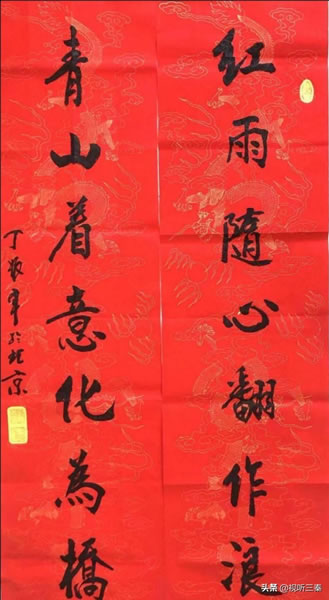 红雨隨心翻作浪
青山着意化為橋
丁敬軍於北京
头条 @视听三秦